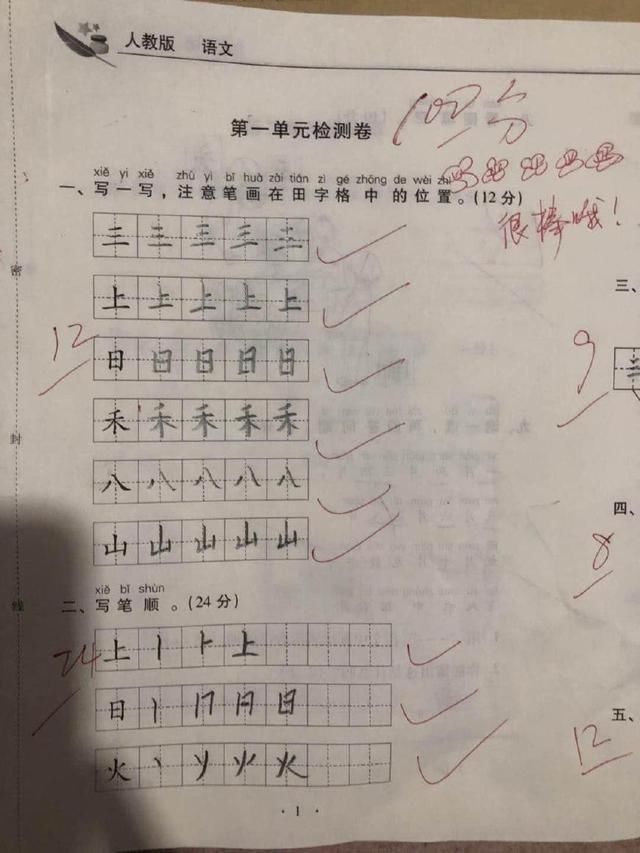 人教版 语文
第一单元检测卷
100分
xiě yi xiě zhù yì bǐ huà zài tián zì gé zhōng de wèi zhì
一、写一写，注意笔画在田字格中的位置。(12分)
很棒哦！
三 三 三 三 三
上 上 上 上 上
12
日 日 日 日 日
禾 禾 禾 禾 禾
八 八 八 八 八
山 山 山 山 山
xiě bǐ shùn
二、写笔顺。(24分)
24
上 丨 ⺊ 上
日 丨 冂 日
火 丶
火
·1·
密
封
线
三、
9
四、
8
五、
12